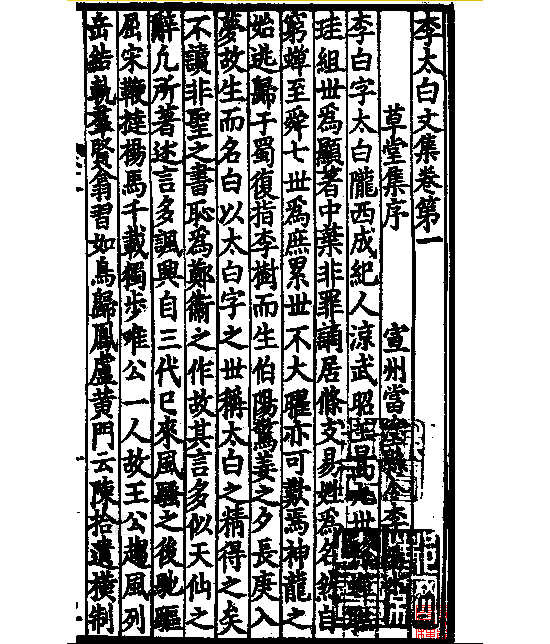 李太白文集卷第一
草堂集序　宣州當塗縣令李
李白字太白隴西成紀人涼武昭王暠九世
珪組世爲顯著中葉非罪謫居條支易姓爲名然自
窮蟬至舜七世爲庶累世不大曜亦可歎焉神龍之
始逃歸于蜀復指李樹而生伯陽驚姜之夕長庚入
夢故生而名白以太白字之世稱太白之精得之矣
不讀非聖之書恥爲鄭衞之作故其言多似天仙之
辭凡所著述言多諷興自三代已來風騷之後馳驅
屈宋鞭撻楊馬千載獨步唯公一人故王公趨風列
岳結軌羣賢翕習如鳥歸鳳盧黄門云陳拾遺横制